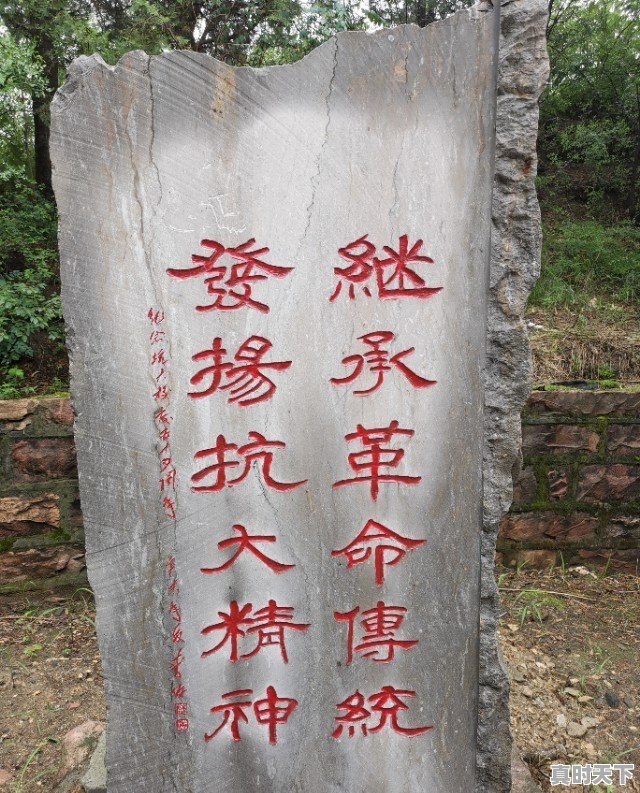 繼承革命傳統
發揚抗大精神
真时天下